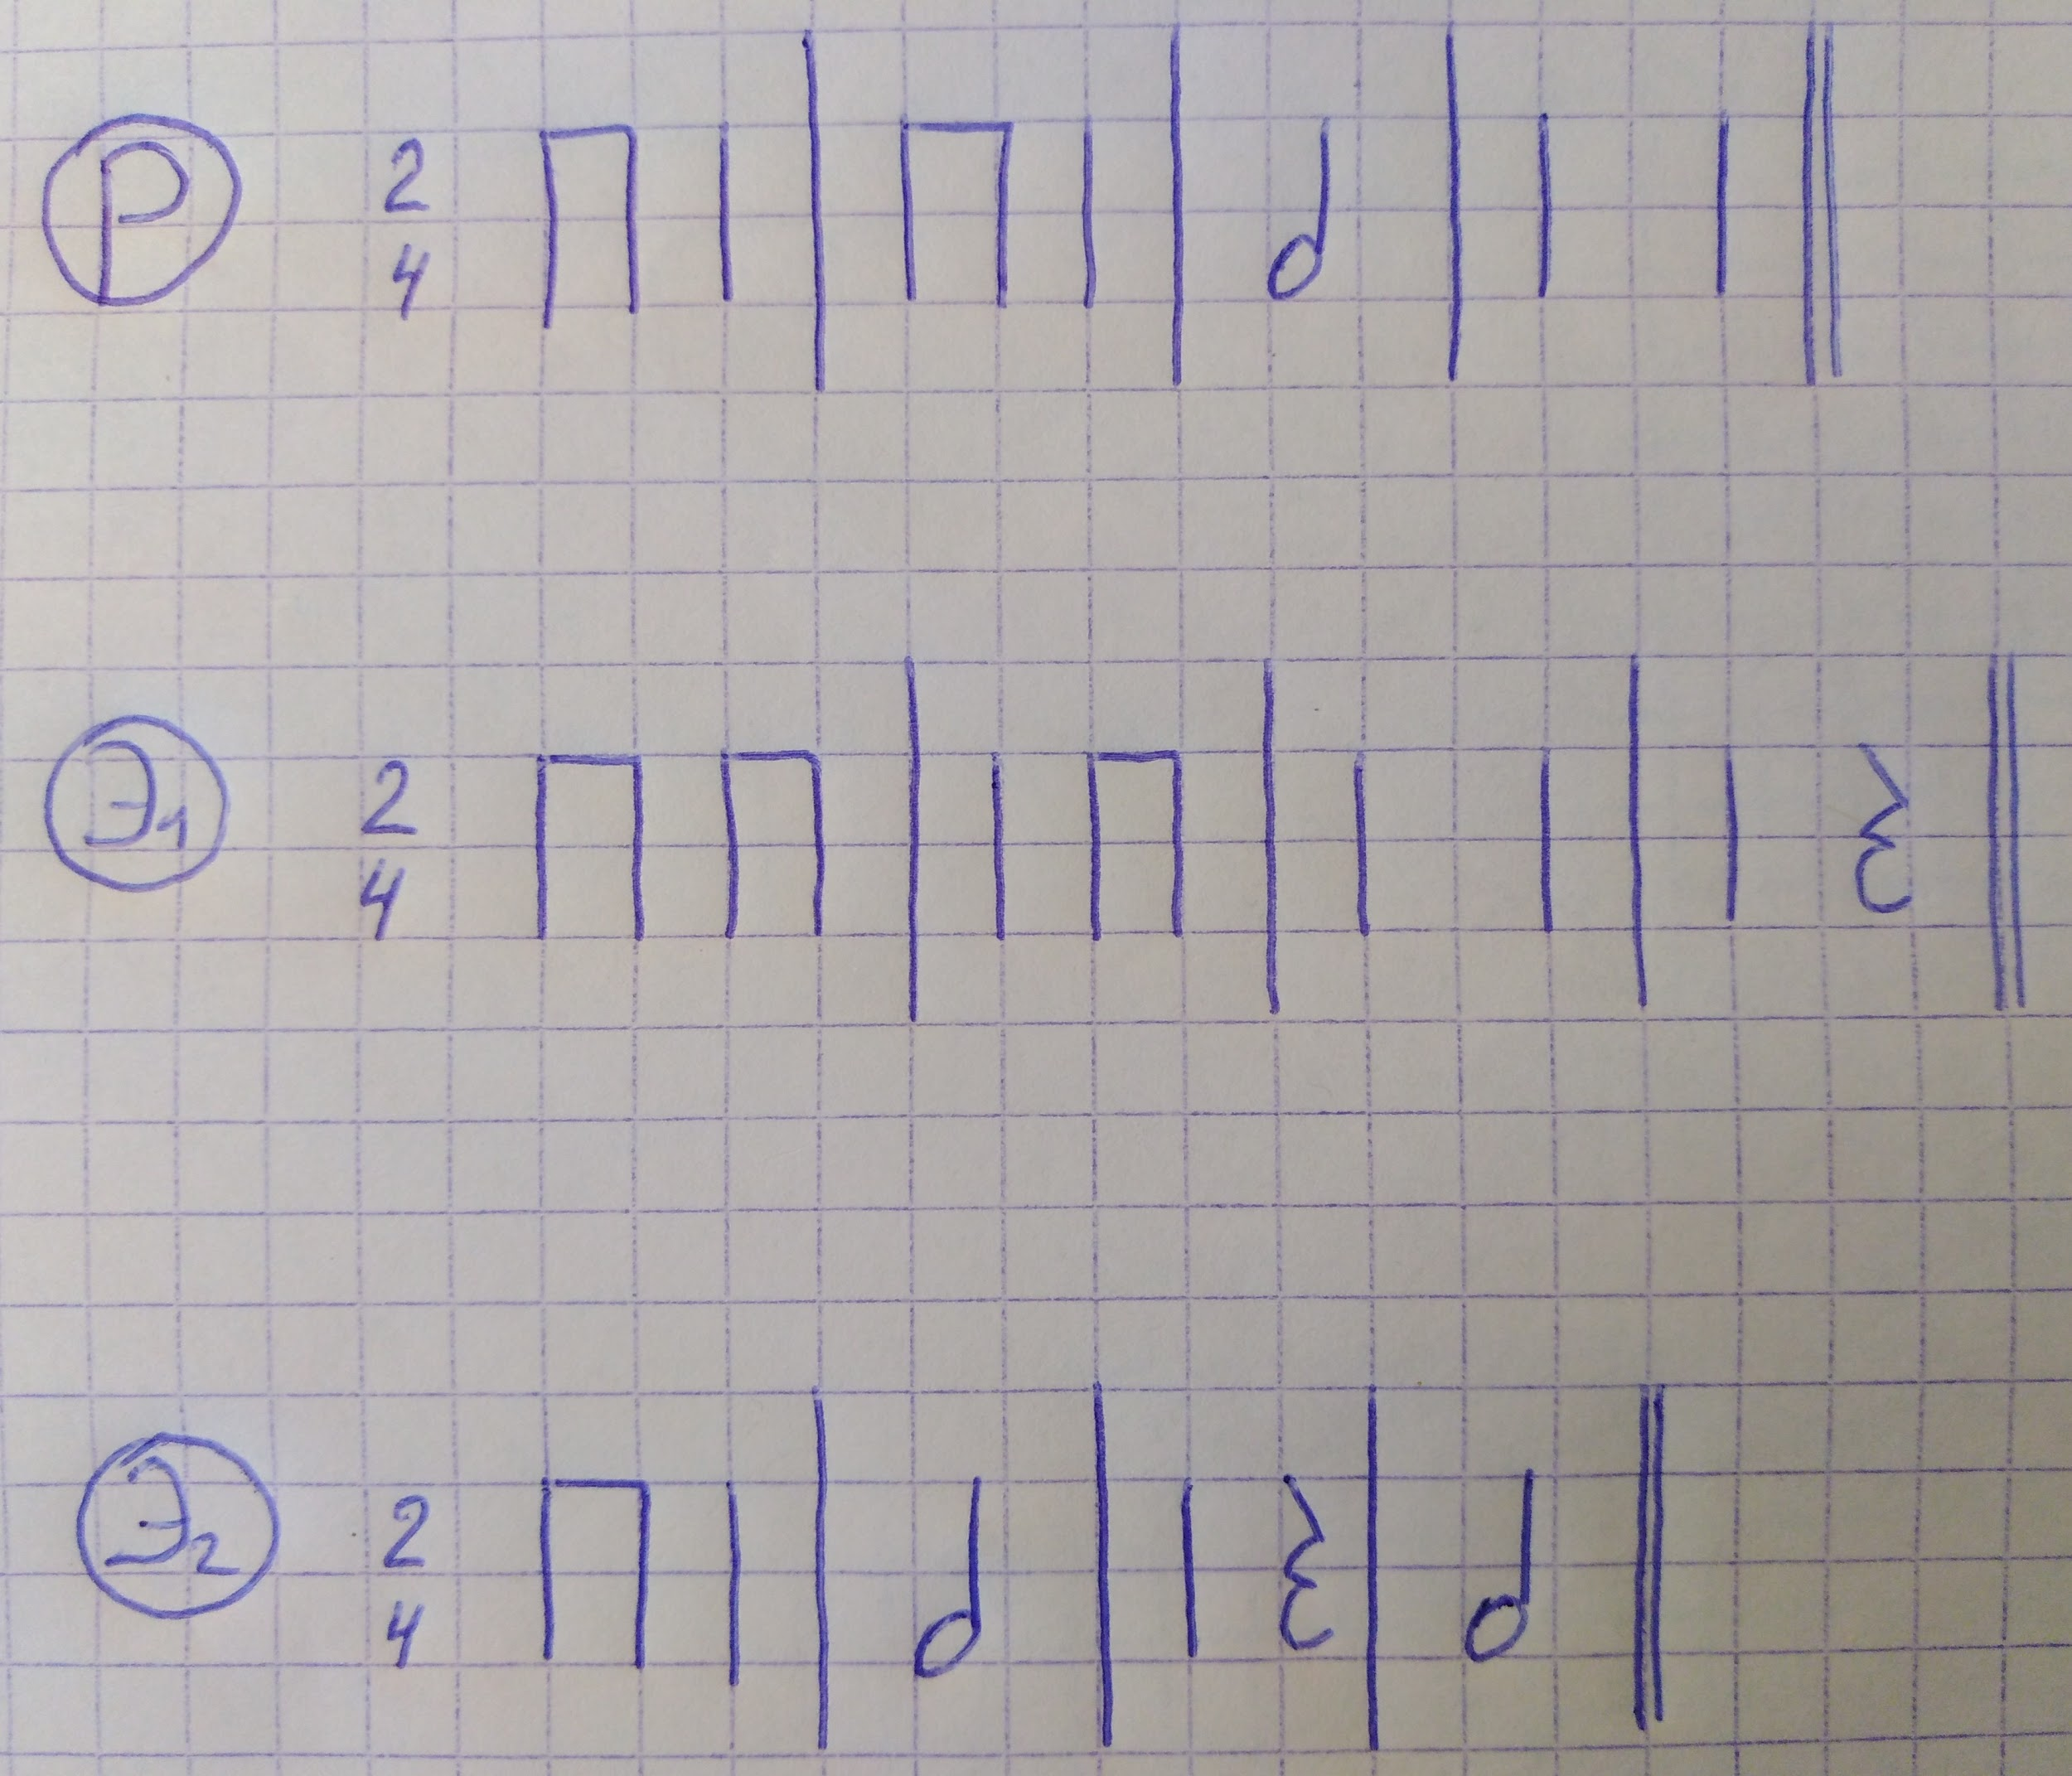 Р 2/4
Э1 2/4
Э2 2/4